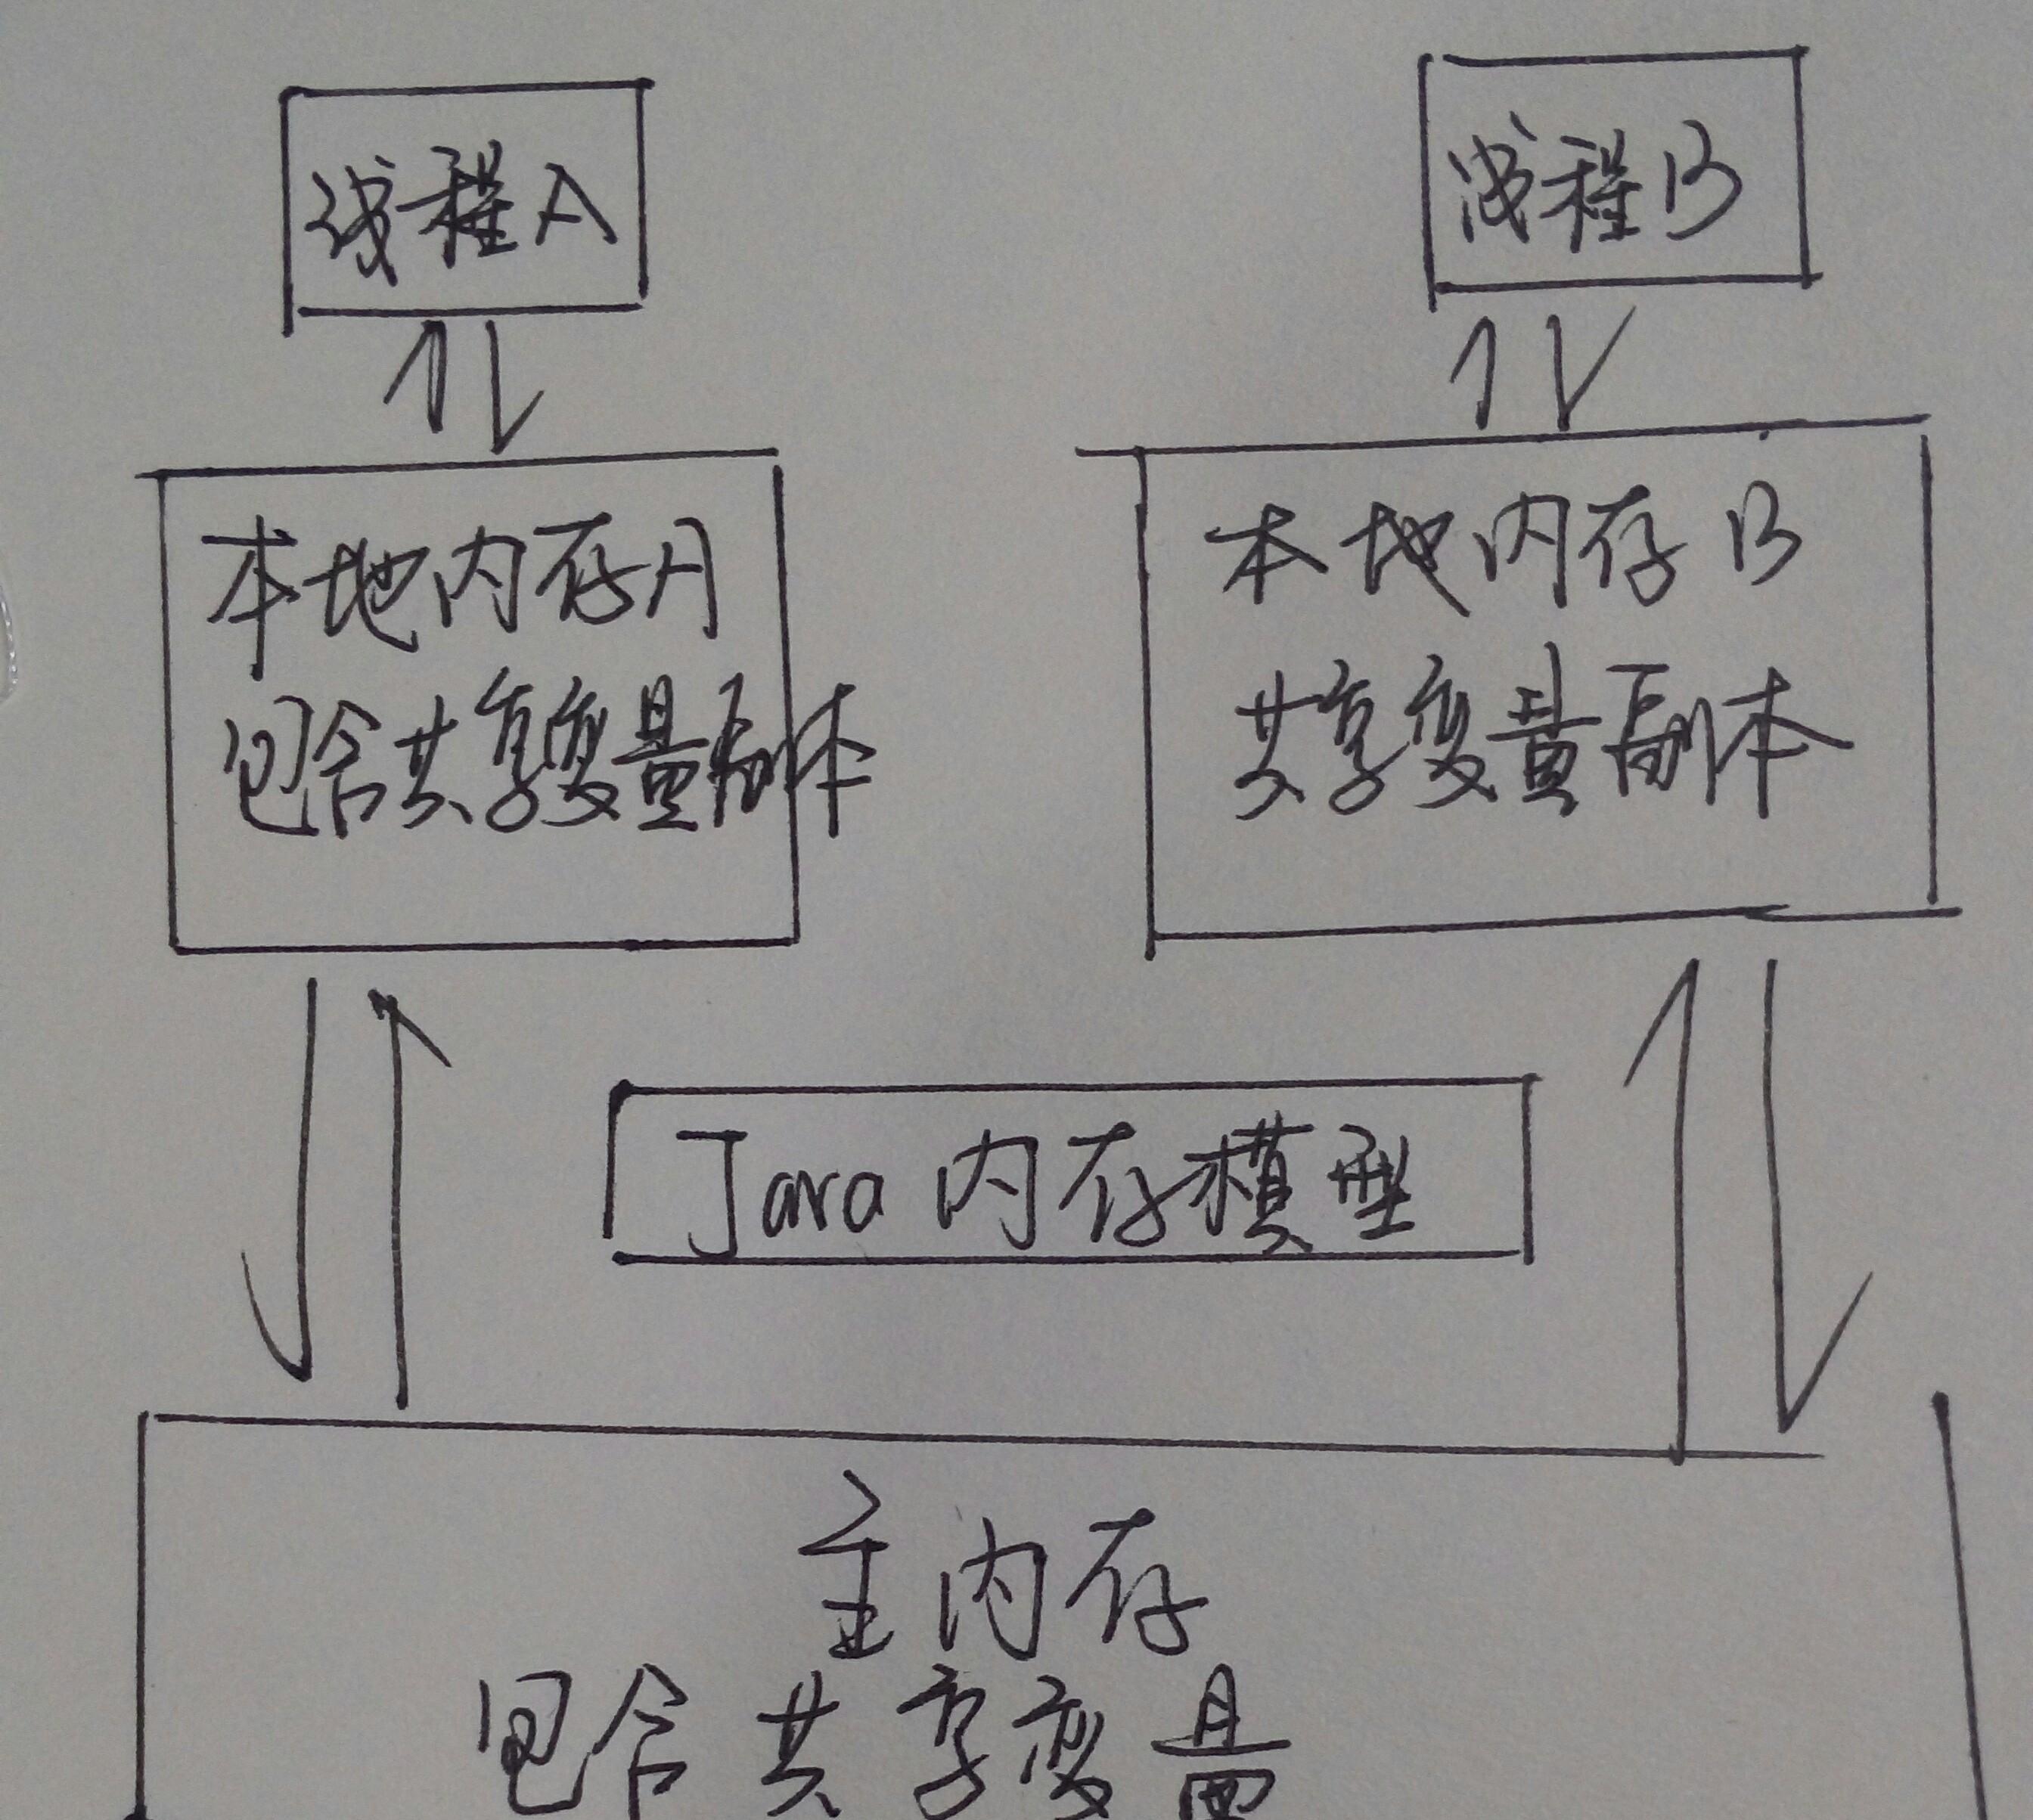 线程A
线程B
本地内存A
包含共享变量副本
本地内存B
共享变量副本
Java内存模型
主内存
包含共享变量